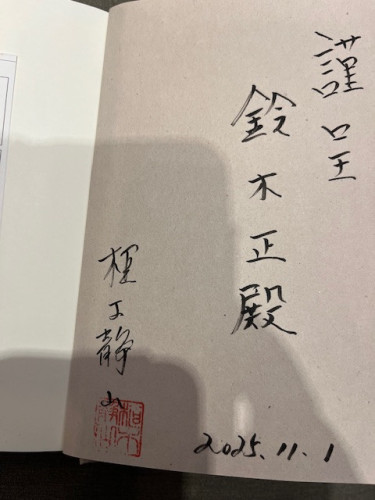 謹呈
鈴木正殿
静山
2025.11.1